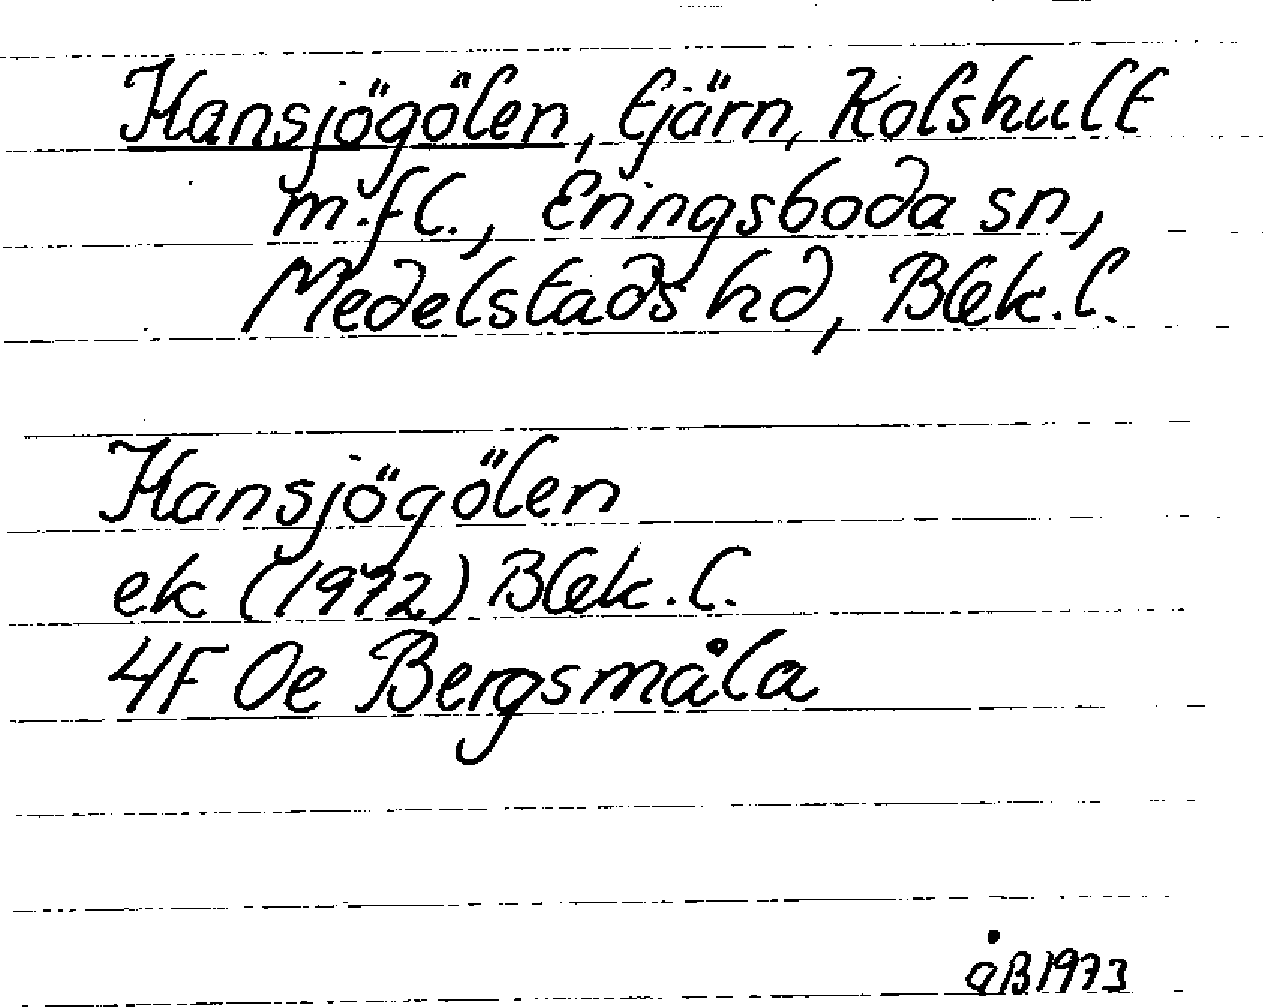 Hansjögölen, tjärn, Kolshult
m.fl., Eringsboda sn,
Medelstads hd, Blek.l.
Hansjögölen
ek (1972) Blek.l.
4F 0e Bergsmåla
åB 1973